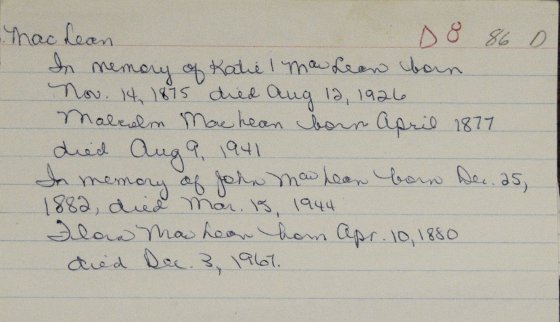 MacLean D8 86 D
In memory of Katie MacLean born
Nov. 14, 1875 died Aug 12, 1926
Malcolm MacLean born April 1877
died Aug 9, 1941
In memory of John MacLean born Dec. 25,
1882, died Mar. 15, 1944
Flora MacLean born Apr. 10, 1880
died Dec. 3, 1967.